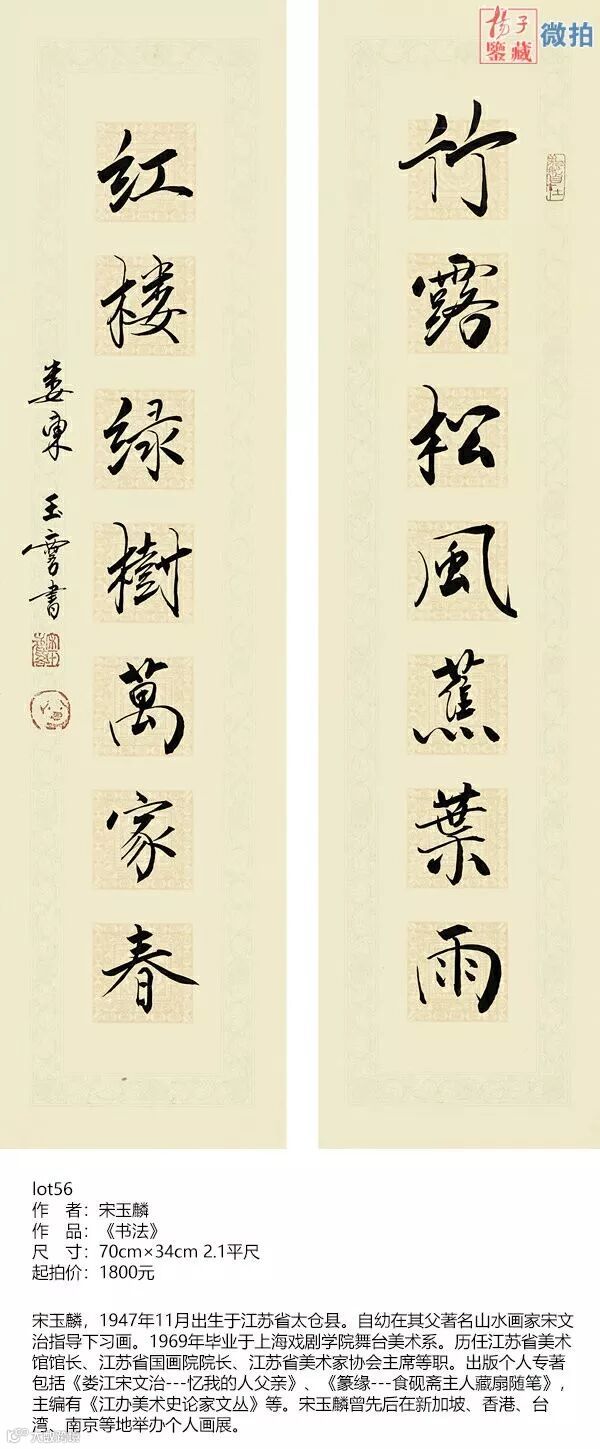 揚子
鑒藏
微拍
竹露松風蕉葉雨
红楼绿樹萬家春
娄東 玉麐書
lot56
作 者：宋玉麟
作 品：《书法》
尺 寸：70cm×34cm 2.1平尺
起拍价：1800元
宋玉麟，1947年11月出生于江苏省太仓县。自幼在其父著名山水画家宋文
治指导下习画。1969年毕业于上海戏剧学院舞台美术系。历任江苏省美术
馆馆长、江苏省国画院院长、江苏省美术家协会主席等职。出版个人专著
包括《娄江宋文治---忆我的人父亲》、《篆缘---食砚斋主人藏扇随笔》，
主编有《江办美术史论家文丛》等。宋玉麟曾先后在新加坡、香港、台
湾、南京等地举办个人画展。